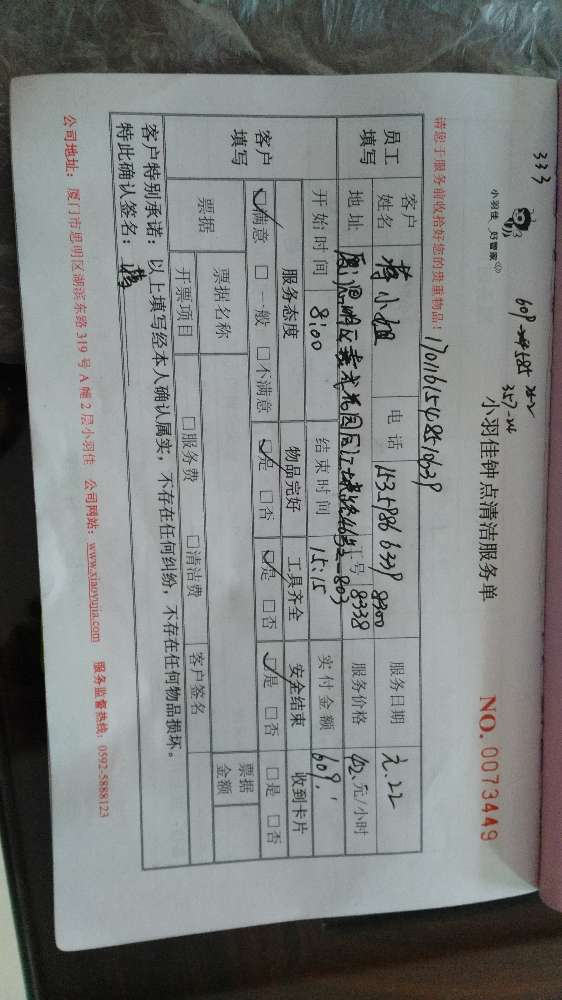 333
小羽佳 好管家
609
357-26
小羽佳钟点清洁服务单
NO. 0073449
请您于服务前收拾好您的贵重物品！
1701161548510639
员工填写
客户姓名
蒋小姐
电话
15359866339
服务日期
元.22
地址
工号
8300
8338
服务价格
42.元/小时
开始时间
8:00
结束时间
15:15
实付金额
609.
客户填写
服务态度
物品完好
工具齐全
安全结束
收到卡片
☑满意 □一般 □不满意
☑是 □否
☑是 □否
☑是 □否
□是 □否
票据
票据名称
票据金额
开票项目
□服务费 □清洁费
客户签名
客户特别承诺：以上填写经本人确认属实，不存在任何纠纷，不存在任何物品损坏。
特此确认签名：蒋
公司地址：厦门市思明区湖滨东路 319 号 A 幢 2 层小羽佳 公司网站：www.xiaoyujia.com 服务监督热线：0592-5888123